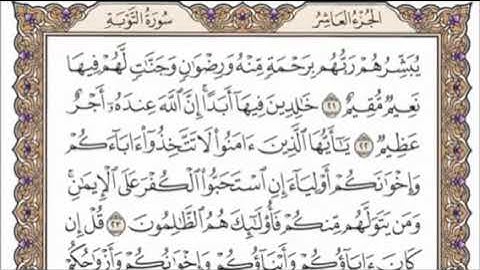 سُورَةُ التَّوْبَةِ الجُزْءُ العَاشِرُ
يُبَشِّرُهُمْ رَبُّهُم بِرَحْمَةٍ مِّنْهُ وَرِضْوَٰنٍ وَجَنَّٰتٍ لَّهُمْ فِيهَا
نَعِيمٌ مُّقِيمٌ ٢١ خَٰلِدِينَ فِيهَآ أَبَدًا ۚ إِنَّ ٱللَّهَ عِندَهُۥٓ أَجْرٌ
عَظِيمٌ ٢٢ يَٰٓأَيُّهَا ٱلَّذِينَ ءَامَنُوا۟ لَا تَتَّخِذُوٓا۟ ءَابَآءَكُمْ
وَإِخْوَٰنَكُمْ أَوْلِيَآءَ إِنِ ٱسْتَحَبُّوا۟ ٱلْكُفْرَ عَلَى ٱلْإِيمَٰنِ ۚ
وَمَن يَتَوَلَّهُم مِّنكُمْ فَأُو۟لَٰٓئِكَ هُمُ ٱلظَّٰلِمُونَ ٢٣ قُلْ إِن
كَانَ ءَابَآؤُكُمْ وَأَبْنَآؤُكُمْ وَإِخْوَٰنُكُمْ وَأَزْوَٰجُكُمْ